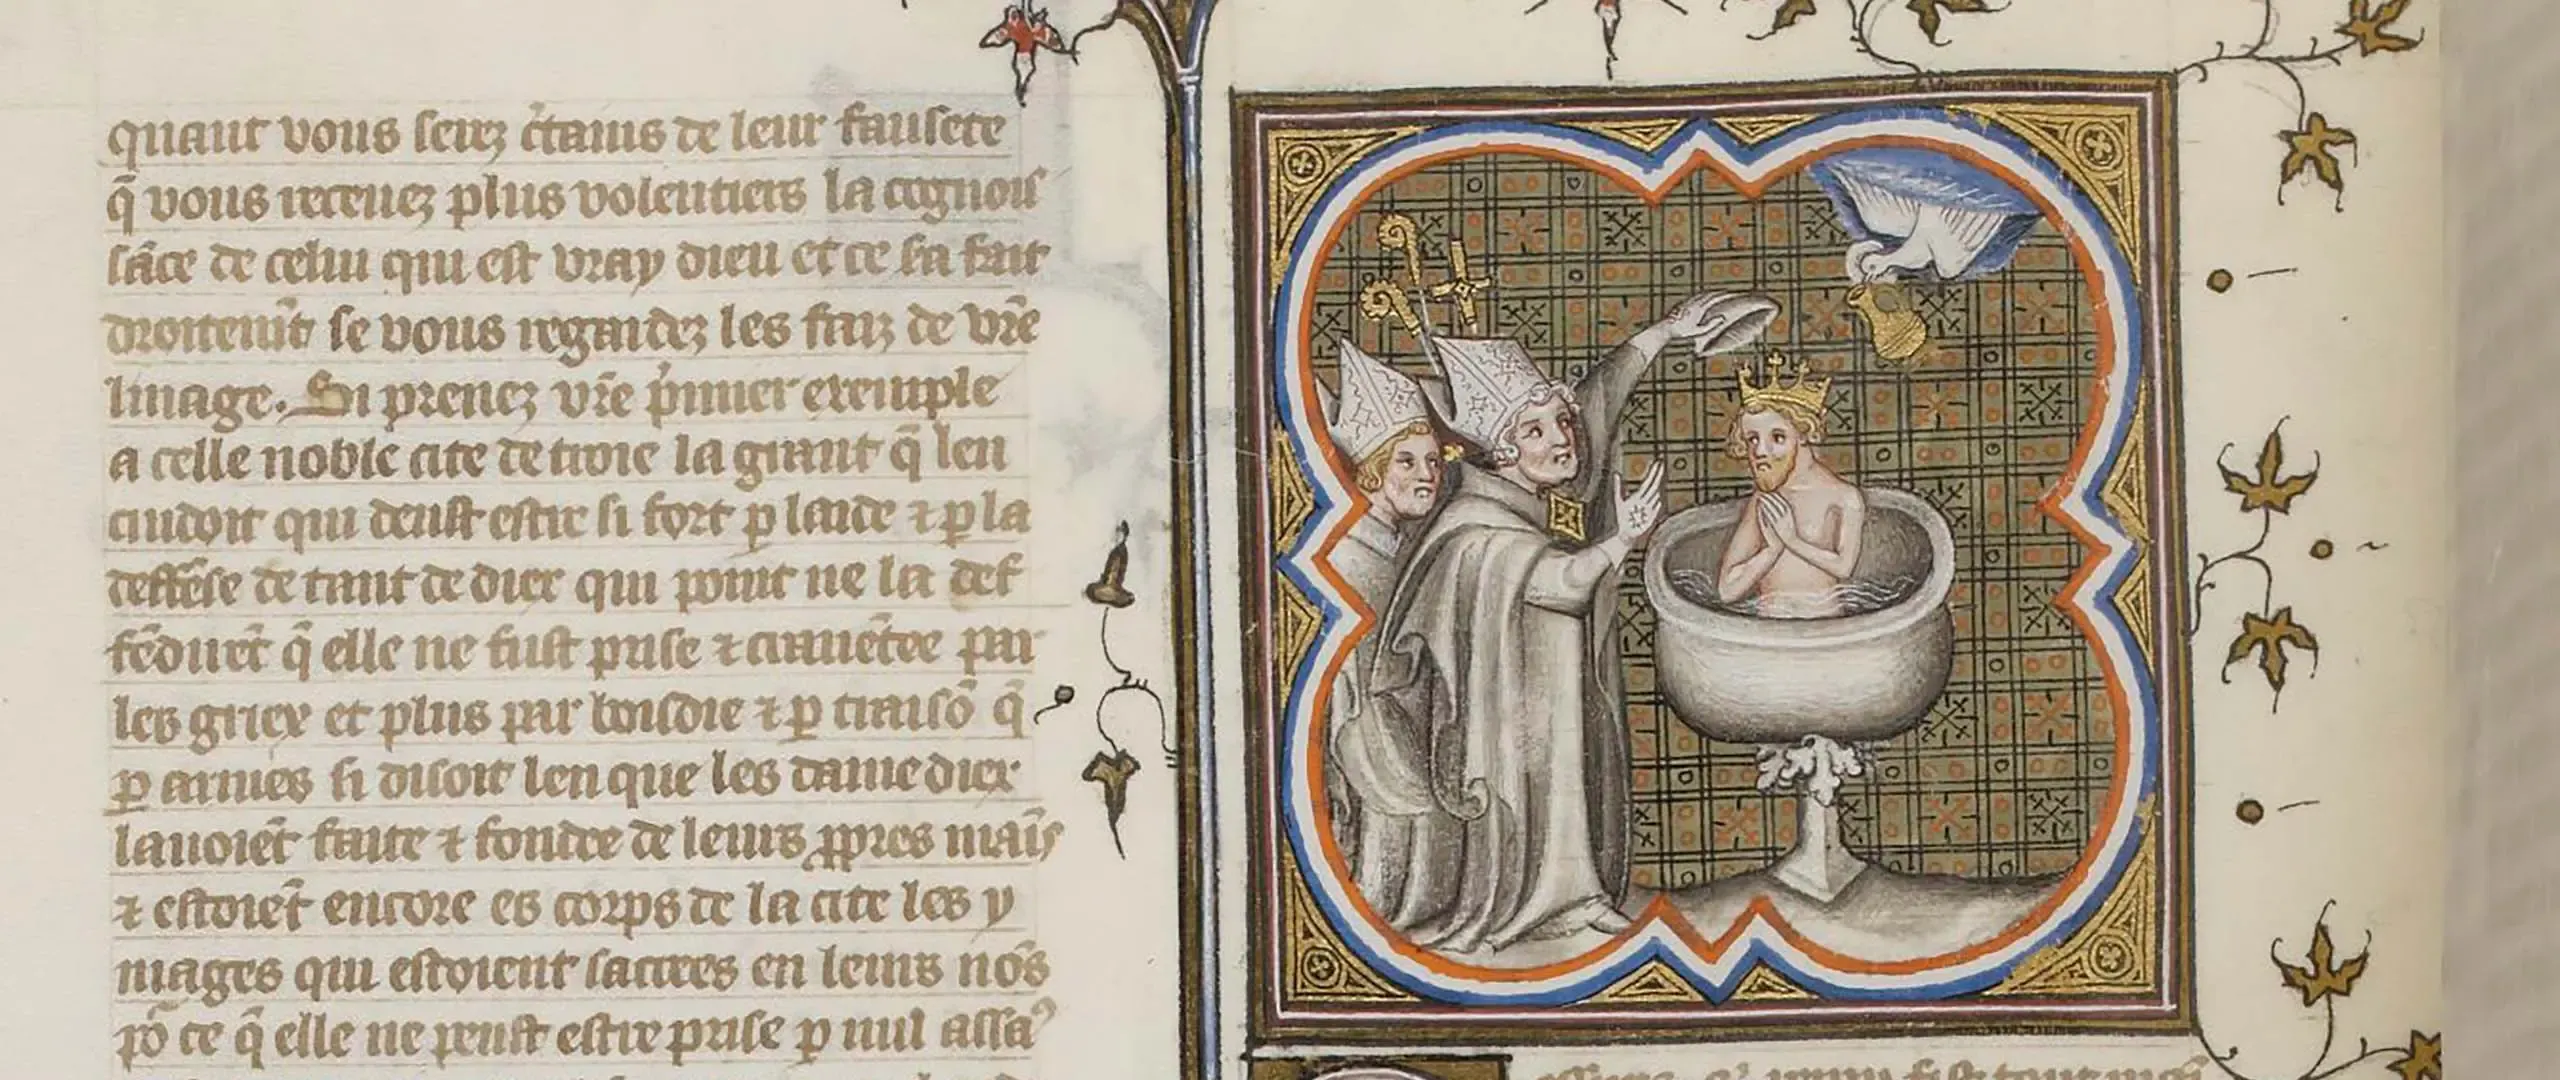 quant vous serez c̾tains de leur fausete
q̃ vous receuez plus volentiers la cognois
sãce de celui qui est vray dieu et ce sa fait
droitem̃t se vous regardez les faiz de vr̃e
linage. Si prenez vr̃e p̾mier exemple
a celle noble cite de troie la grant q̃ len
cuidoit qui deust estre si fort ꝑ laide ⁊ ꝑ la
deffẽse de tant de diex qui point ne la def
fẽdirẽt q̃ elle ne fust prise ⁊ crauẽtee par
les griex et plus par boisdie ⁊ ꝑ traisõ q̃
ꝑ armes si disoit len que les dame diex
lauoiẽt faite ⁊ fondee de leurs ꝓpres mais̃
⁊ estoiẽt encore es corps de la cite les y
mages qui estoient sacrees en leurs nõs
põ ce q̃ elle ne peust estre prise ꝑ nul assaꝰ